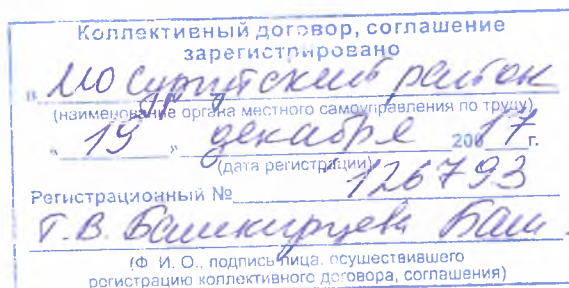 Коллективный договор, соглашение
зарегистрировано
в МО Сургутский район
(наименование органа местного самоуправления по труду)
"19" декабря 20017 г.
(дата регистрации)
Регистрационный № 126793
Т.В. Башкирцева Баш
(Ф. И. О., подпись лица, осуществившего
регистрацию коллективного договора, соглашения)